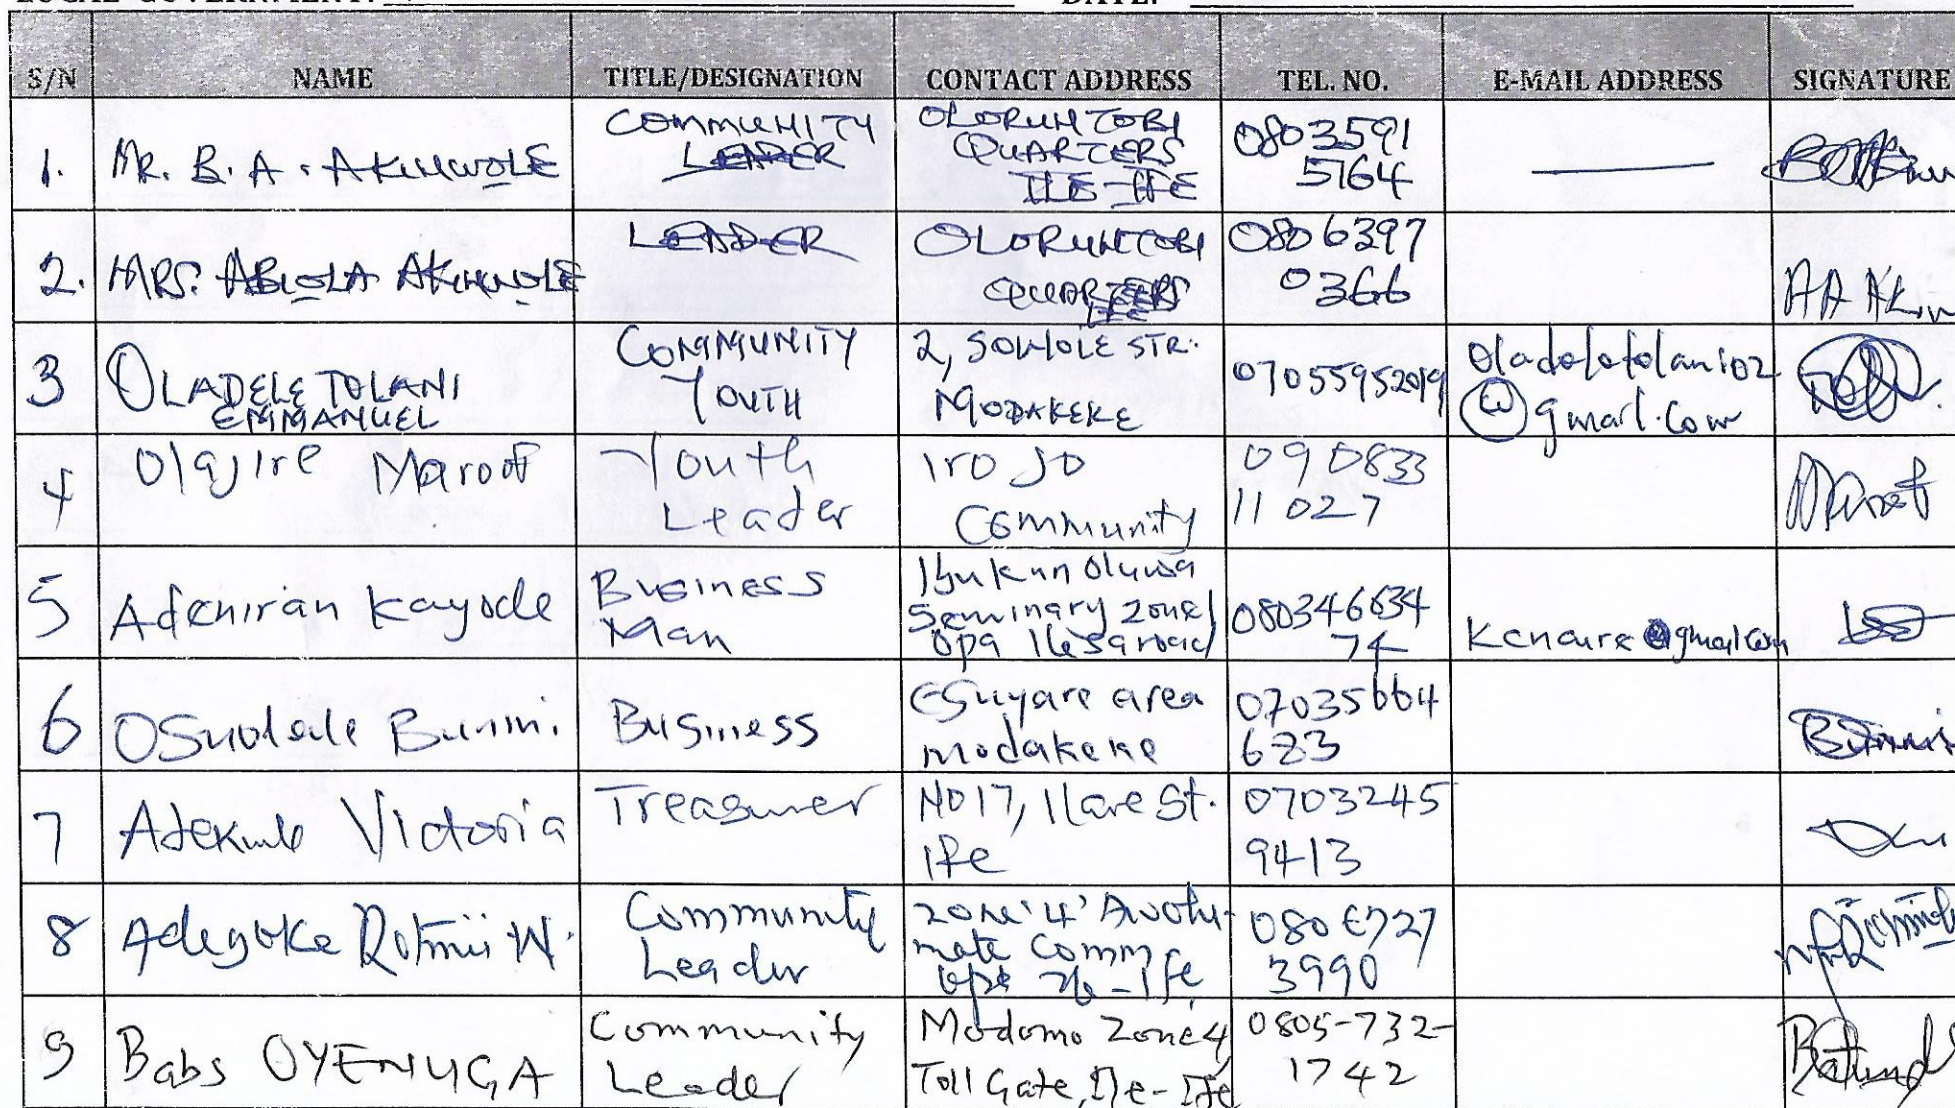 LOCAL GOVERNMENT: DATE:
S/N NAME TITLE/DESIGNATION CONTACT ADDRESS TEL. NO. E-MAIL ADDRESS SIGNATURE
1. MR. B. A. AKINWOLE
COMMUNITY
LEADER
OLORUNTOBI
QUARTERS
ILE-IFE
0803591
5764
2. MRS. ABIOLA AKINWOLE
LEADER
OLORUNTOBI
QUARTERS
IFE
0806397
0366
AA Akin
3 OLADELE TOLANI
EMMANUEL
COMMUNITY
YOUTH
2, SOWOLE STR.
MODAKEKE
07055952019
oladeletolani02
@gmail.com
4 Olajire Maroof
Youth
Leader
Irojo
Community
090833
11027
5 Adeniran Kayode
Business
Man
Ibukun Oluwa
Seminary zone
Opa Ilesa road
080346634
74
@gmail.com
6 Osundale Bunmi.
Business
Esuyare area
modakeke
07035664
623
Bunmi
7 Adekunle Victoria
Treasurer
No 17, Ilare St.
Ife
0703245
9413
8 Adegoke Rotimi W.
Community
Leader
zone '4'
mate Comm
Ile-Ife
3990
9 Babs OYENUGA
Community
Leader
Modomo Zone 4
Toll Gate, Ile-Ife
0805-732-
1742